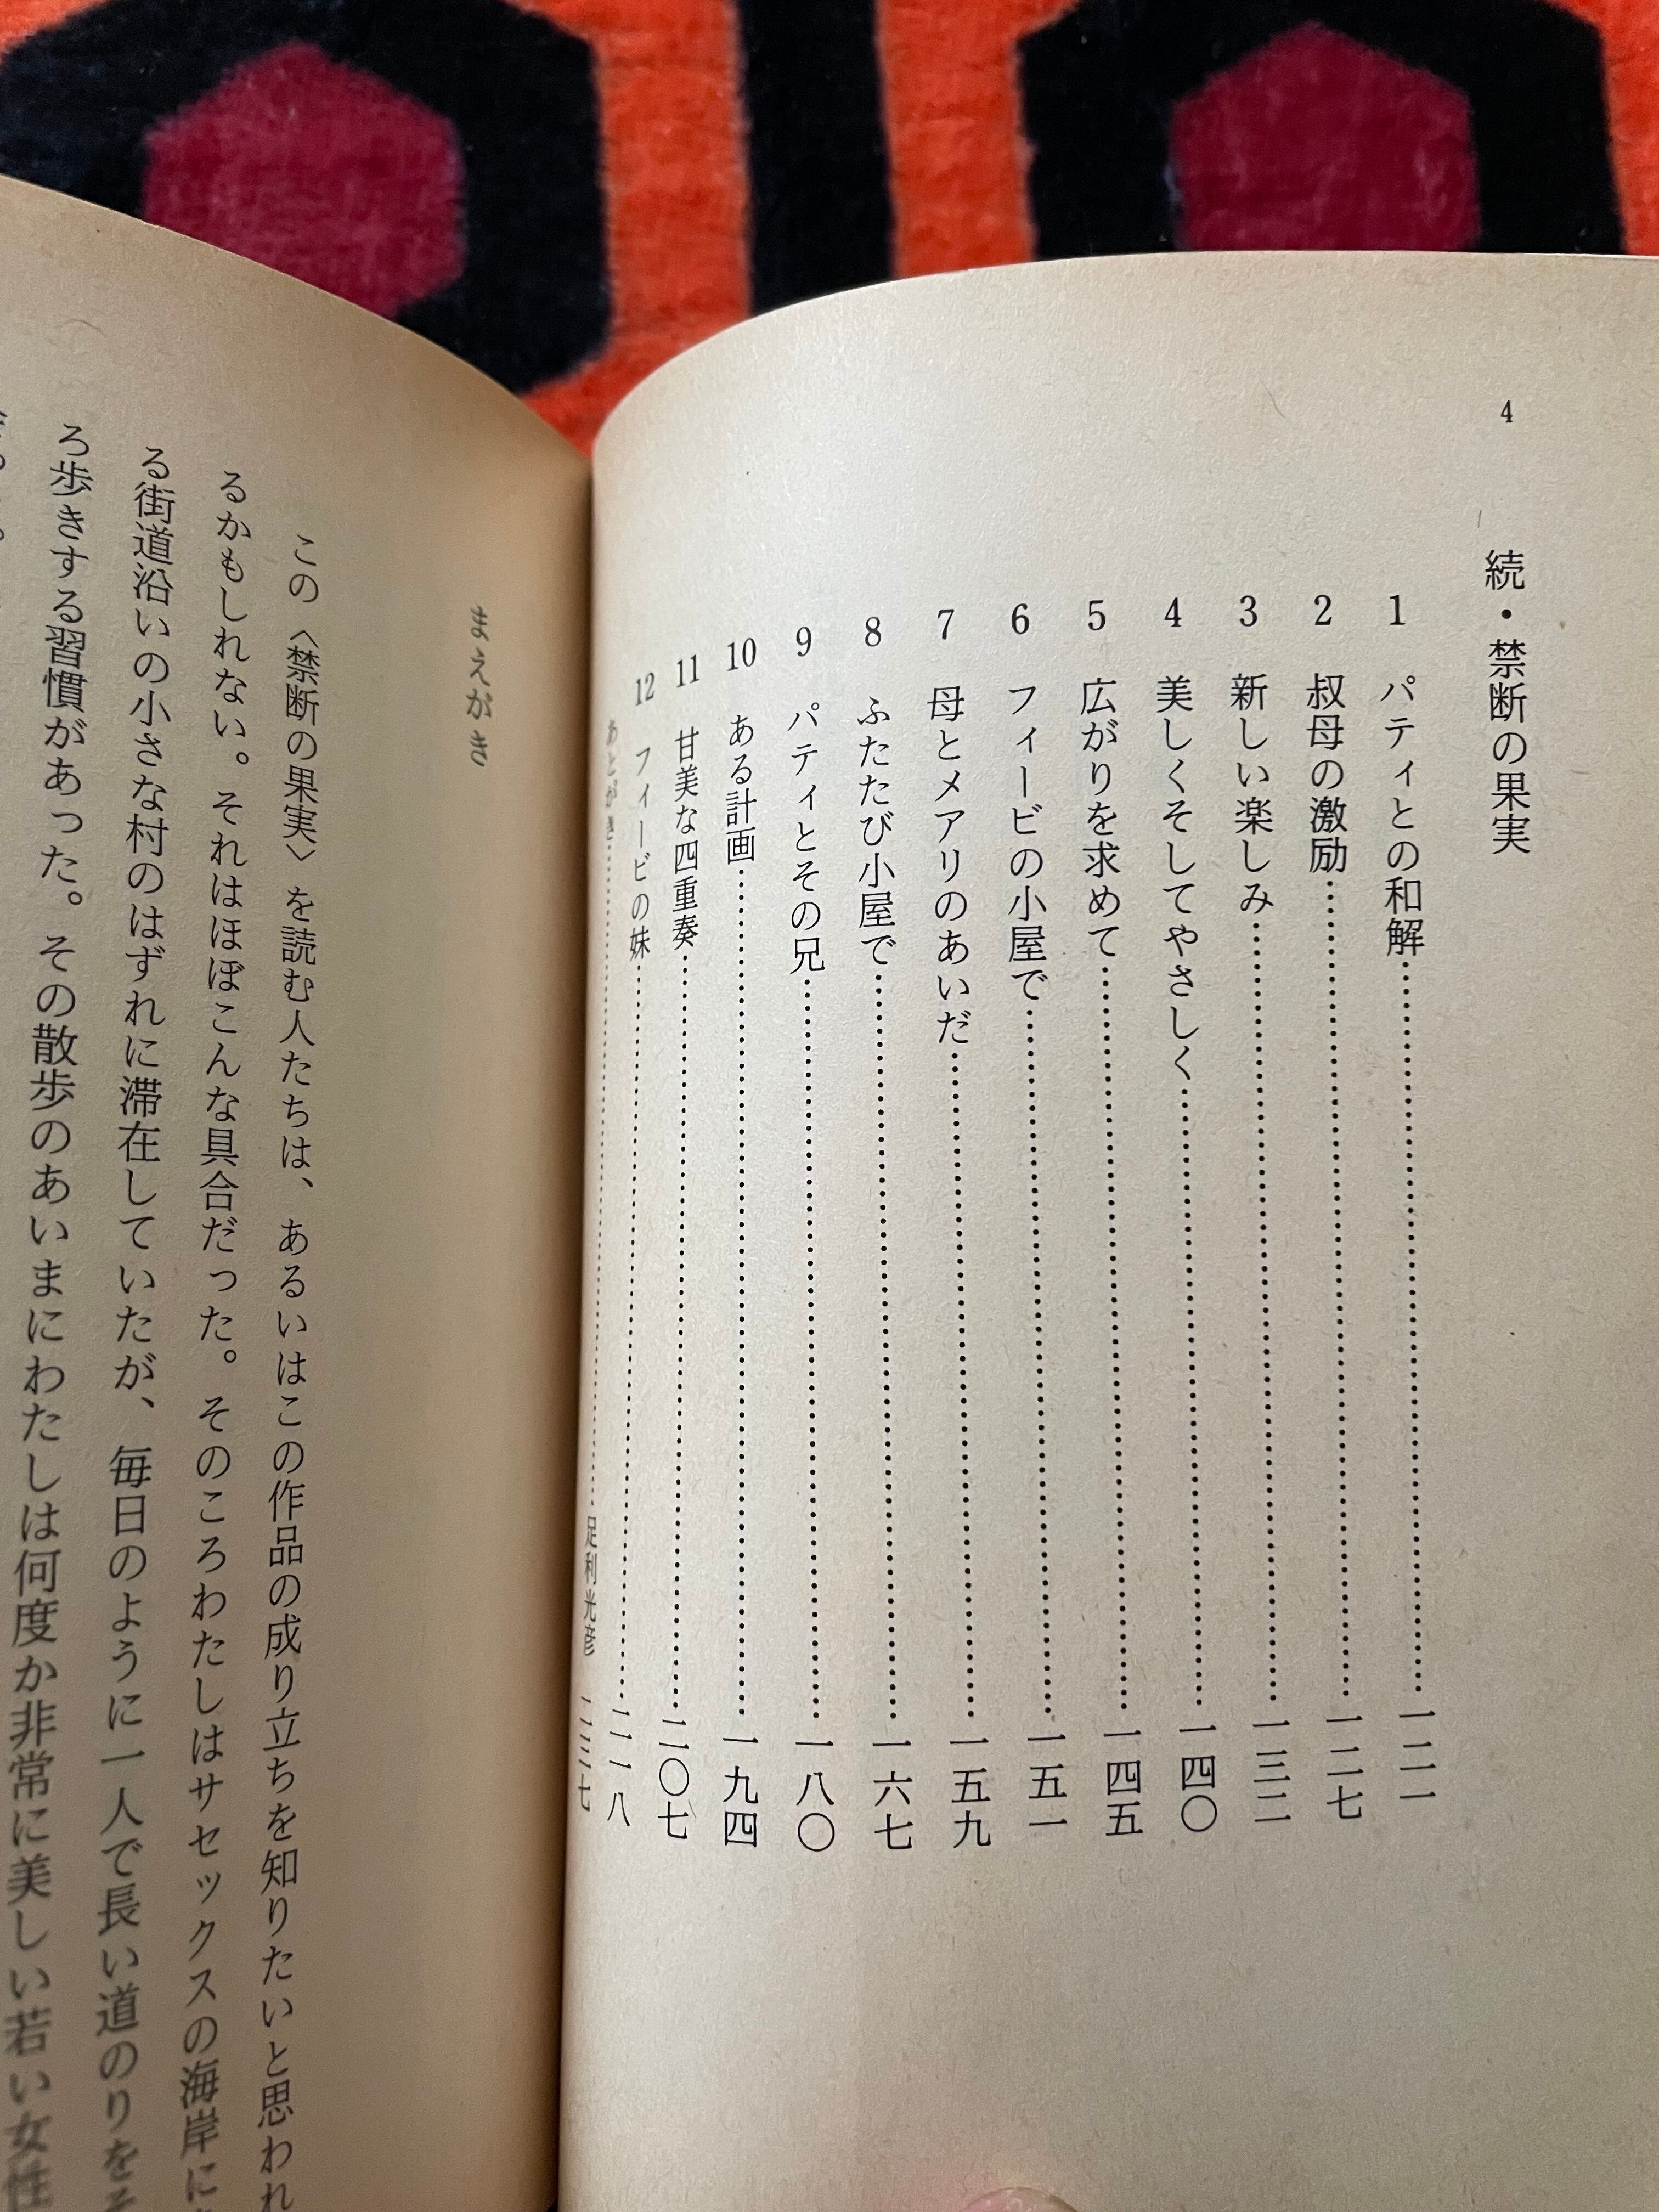 4
続・禁断の果実
1 パティとの和解……………一二一
2 叔母の激励……………一二七
3 新しい楽しみ……………一三二
4 美しくそしてやさしく……………一四〇
5 広がりを求めて……………一四五
6 フィービの小屋で……………一五一
7 母とメアリのあいだ……………一五九
8 ふたたび小屋で……………一六七
9 パティとその兄……………一八〇
10 ある計画……………一九四
11 甘美な四重奏……………二〇七
12 フィービの妹……………二一八
あとがき……………足利光彦 二三七
まえがき
この〈禁断の果実〉を読む人たちは、あるいはこの作品の成り立ちを知りたいと思われ
るかもしれない。それはほぼこんな具合だった。そのころわたしはサセックスの海岸に
る街道沿いの小さな村のはずれに滞在していたが、毎日のように一人で長い道のりをそ
ろ歩きする習慣があった。その散歩のあいまにわたしは何度か非常に美しい若い女性